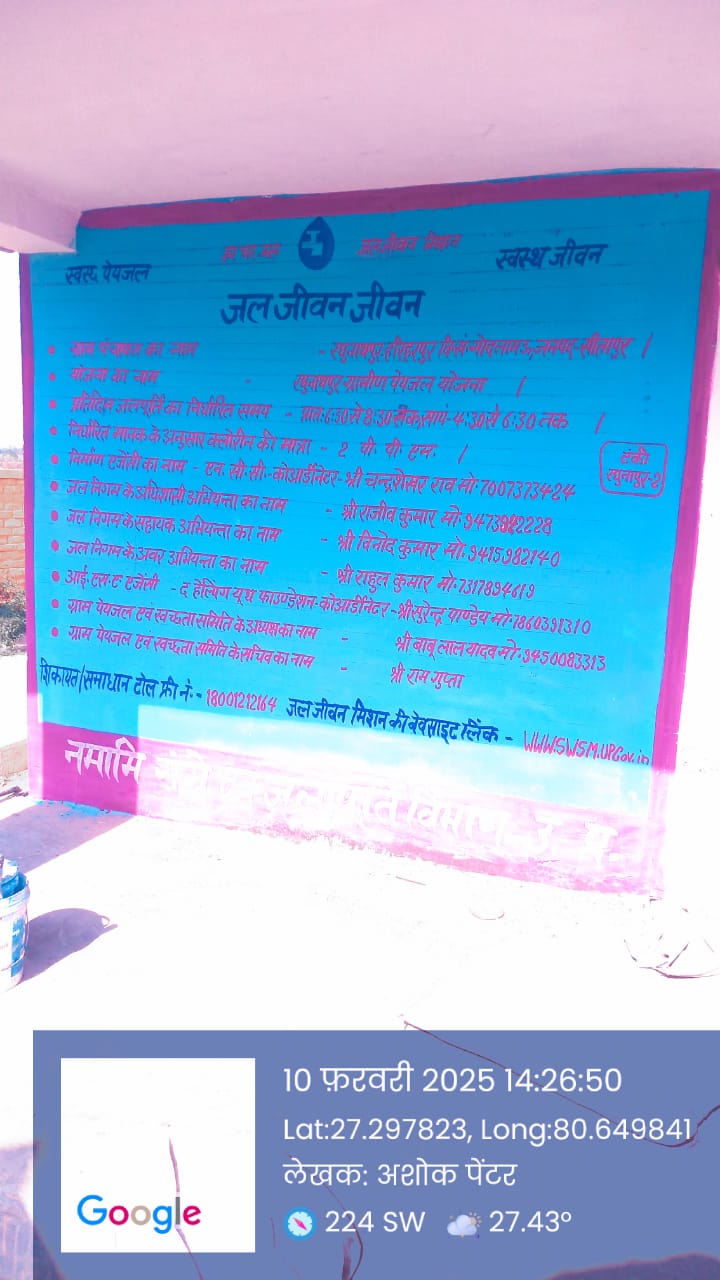 हर घर जल जल जीवन मिशन
स्वस्छ पेयजल स्वस्थ जीवन
जल जीवन जीवन
ग्राम पंचायत का नाम - रघुनाथपुर, हरिहरपुर जनपद-सीतापुर ।
योजना का नाम - रघुनाथपुर ग्रामीण पेयजल योजना ।
प्रतिदिन जलपूर्ति का निर्धारित समय - प्रातः 6:30 से 8:30 तक, सायं- 4:30 से 6:30 तक ।
निर्धारित मानक के अनुसार क्लोरीन की मात्रा - 2 पी. पी. एम. ।
टंकी
रघुनाथपुर-2
निर्माण एजेंसी का नाम - एन. सी. सी.- कोआर्डीनेटर- श्री चन्द्रशेखर राव मो. 7007373424
जल निगम के अधिशासी अभियन्ता का नाम - श्री राजीव कुमार मो.
जल निगम के सहायक अभियन्ता का नाम - श्री विनोद कुमार मो. 9415982140
जल निगम के अवर अभियन्ता का नाम - श्री राहुल कुमार मो. 7317894619
आई. एस. ए एजेंसी - द हेल्पिंग यूथ फाउण्डेशन- कोआर्डीनेटर- पाण्डेय मो. 7860391310
ग्राम पेयजल एवं स्वच्छता समिति के अध्यक्ष का नाम - श्री बाबू लाल यादव मो. 9450083313
ग्राम पेयजल एवं स्वच्छता समिति के सचिव का नाम - श्री राम गुप्ता
शिकायत/समाधान टोल फ्री नं.- 18001212164 जल जीवन मिशन की वेबसाइट लिंक - WWW.SWSM.UP.Gov.in
नमामि गंगे एवं जलापूर्ति विभाग उ. प्र.
10 फ़रवरी 2025 14:26:50
Lat:27.297823, Long:80.649841
लेखक: अशोक पेंटर
Google
224 SW 27.43°